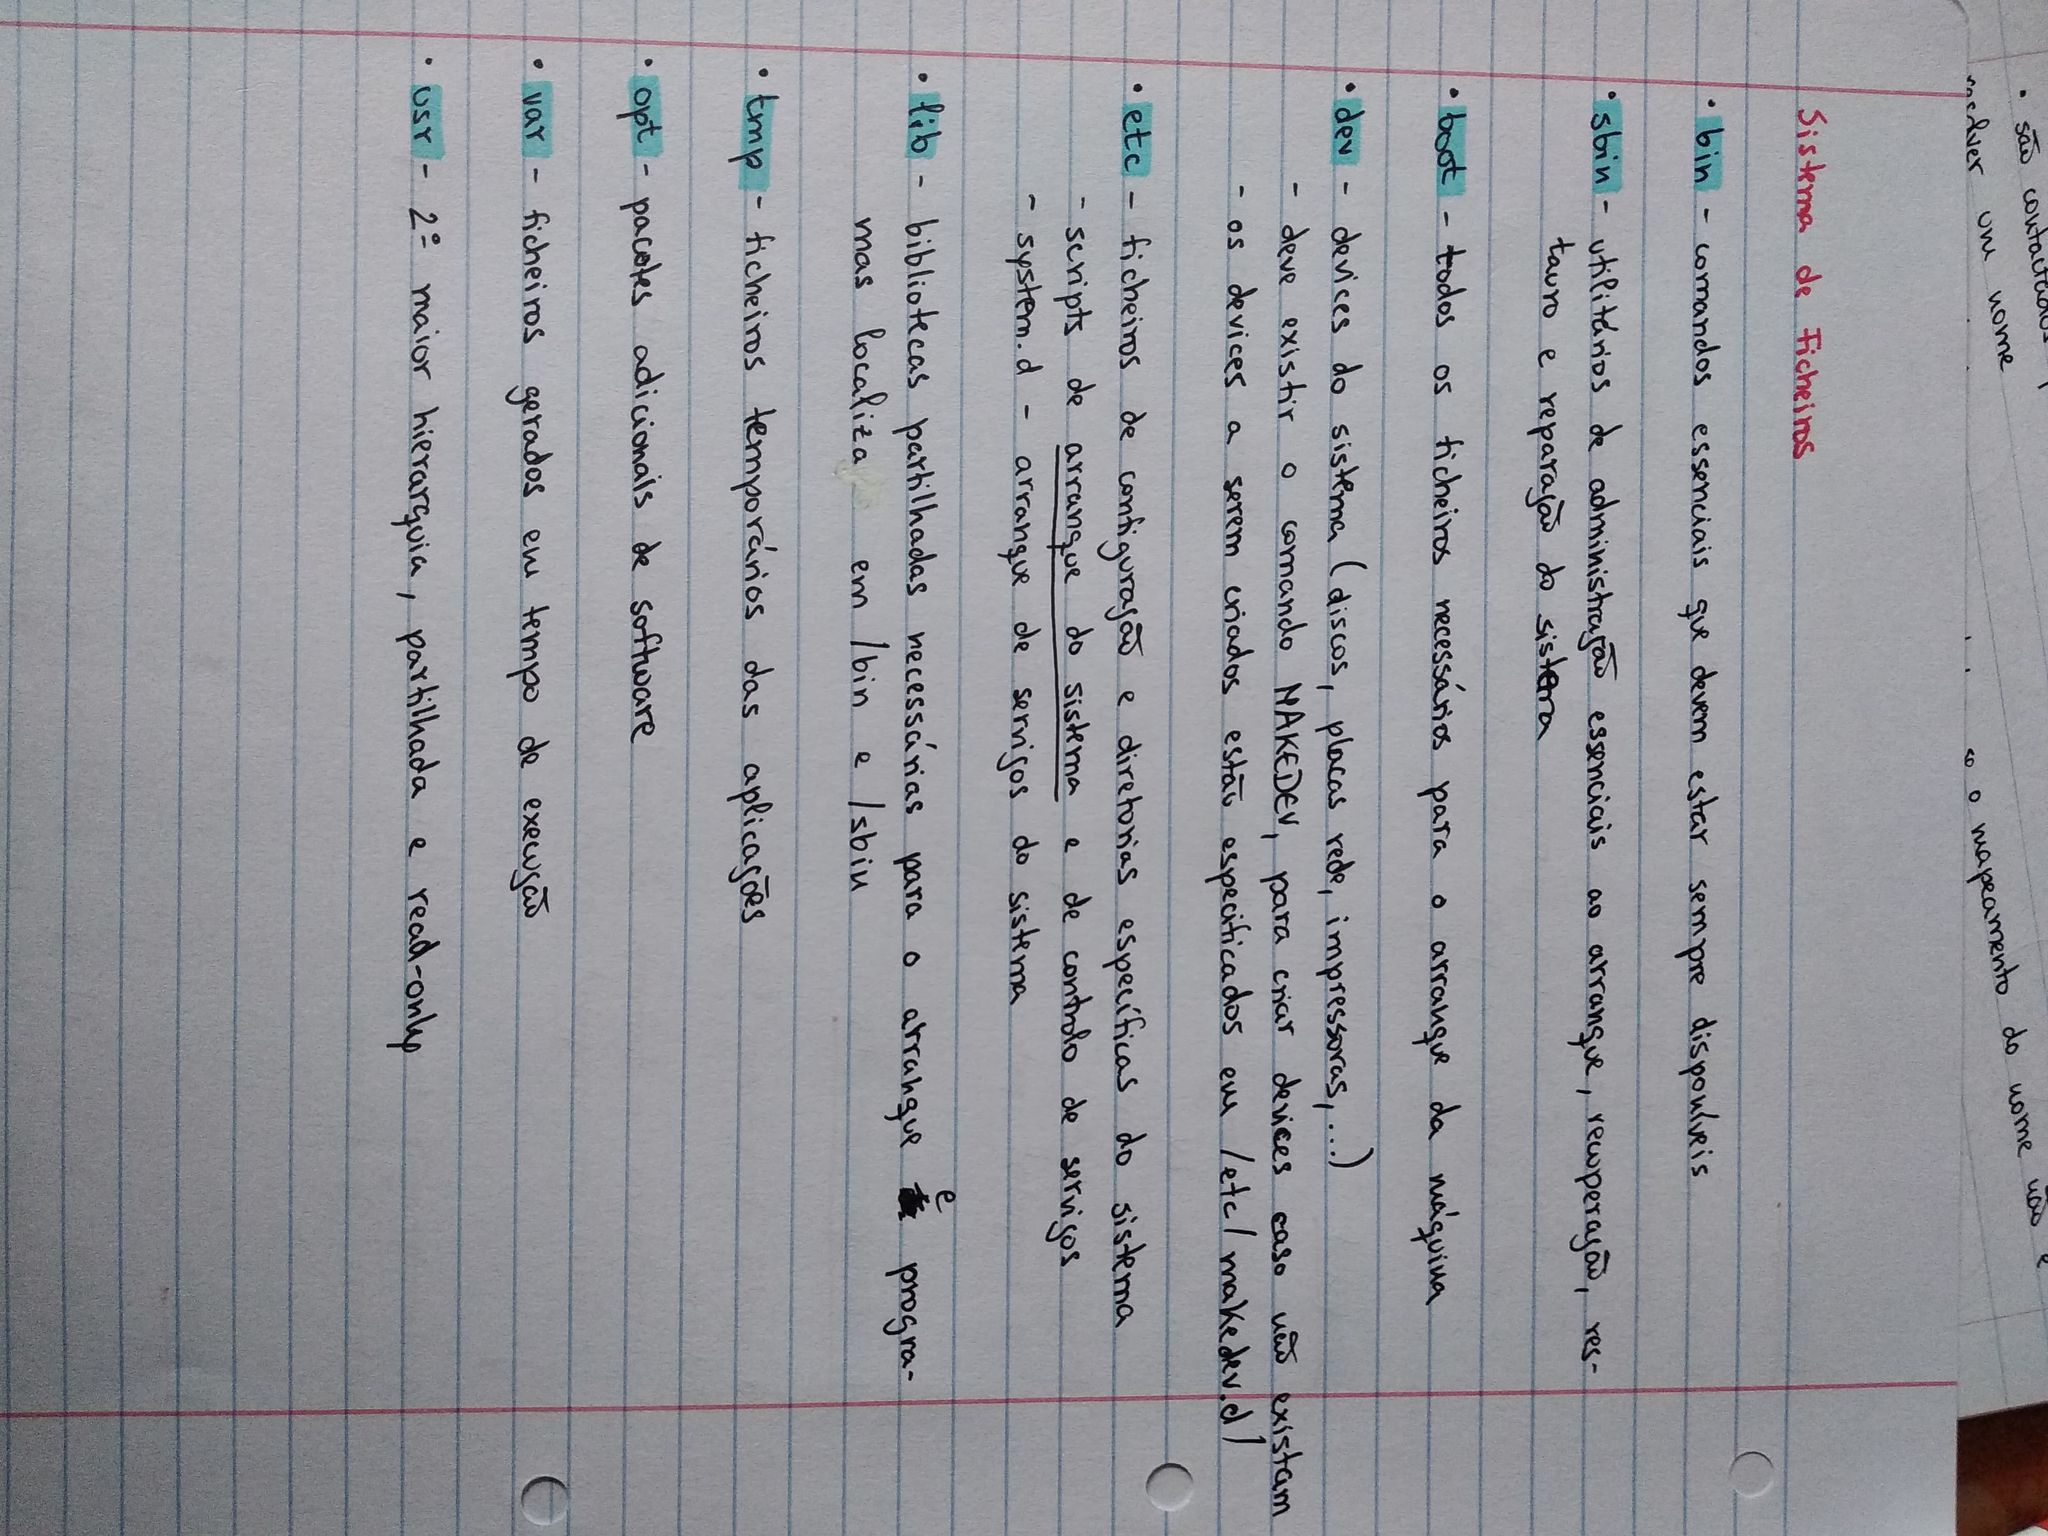 • são contactados
resolver um nome
o mapeamento do nome não é
Sistema de Ficheiros
• bin - comandos essenciais que devem estar sempre disponíveis
• sbin - utilitários de administração essenciais ao arranque, recuperação, res-
tauro e reparação do sistema
• boot - todos os ficheiros necessários para o arranque da máquina
• dev - devices do sistema (discos, placas rede, impressoras, ...)
- deve existir o comando MAKEDEV, para criar devices caso não existam
- os devices a serem criados estão especificados em /etc/makedev.d/
• etc - ficheiros de configuração e diretorias específicas do sistema
- scripts de arranque do sistema e de controlo de serviços
- system.d - arranque de serviços do sistema
• lib - bibliotecas partilhadas necessárias para o arranque e progra-
mas localiza em /bin e /sbin
• tmp - ficheiros temporários das aplicações
• opt - pacotes adicionais de software
• var - ficheiros gerados em tempo de execução
• usr - 2º maior hierarquia, partilhada e read-only